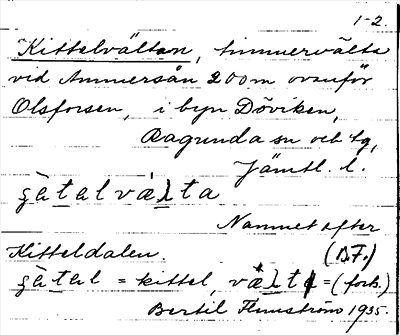 1-2.
Kittelvältan, timmervälta
vid Ammersån 200 m ovanför
Olsforsen, i byn Döviken,
Ragunda sn och tg,
Jämtl. l.
g̀ȧtalvȧlta
Namnet efter
Kitteldalen. (D.F.)
= kittel, = (fork.)
Bertil Flemström 1935.